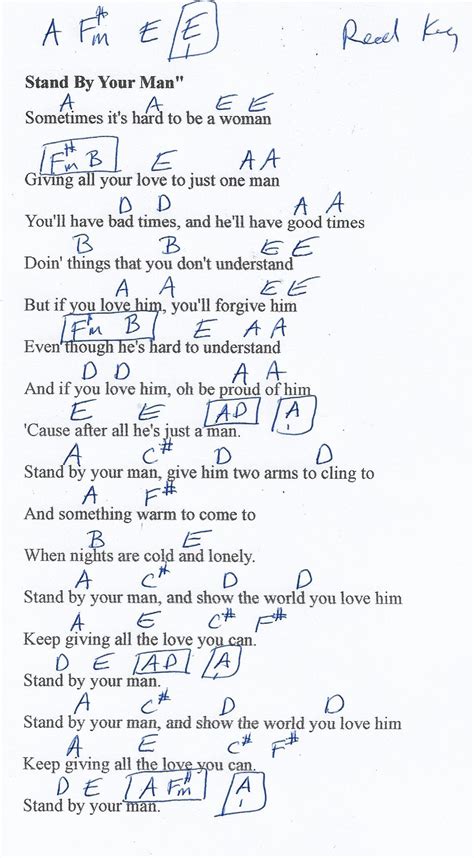 A F#m E E Reed Key
Stand By Your Man"
A A E E
Sometimes it's hard to be a woman
F#m B E A A
Giving all your love to just one man
D D A A
You'll have bad times, and he'll have good times
B B E E
Doin' things that you don't understand
A A E E
But if you love him, you'll forgive him
F#m B E A A
Even though he's hard to understand
D D A A
And if you love him, oh be proud of him
E E AD A
'Cause after all he's just a man.
A C# D D
Stand by your man, give him two arms to cling to
A F#
And something warm to come to
B E
When nights are cold and lonely.
A C# D D
Stand by your man, and show the world you love him
A E C# F#
Keep giving all the love you can.
D E AD A
Stand by your man.
A C# D D
Stand by your man, and show the world you love him
A E C# F#
Keep giving all the love you can.
D E A F#m A
Stand by your man.